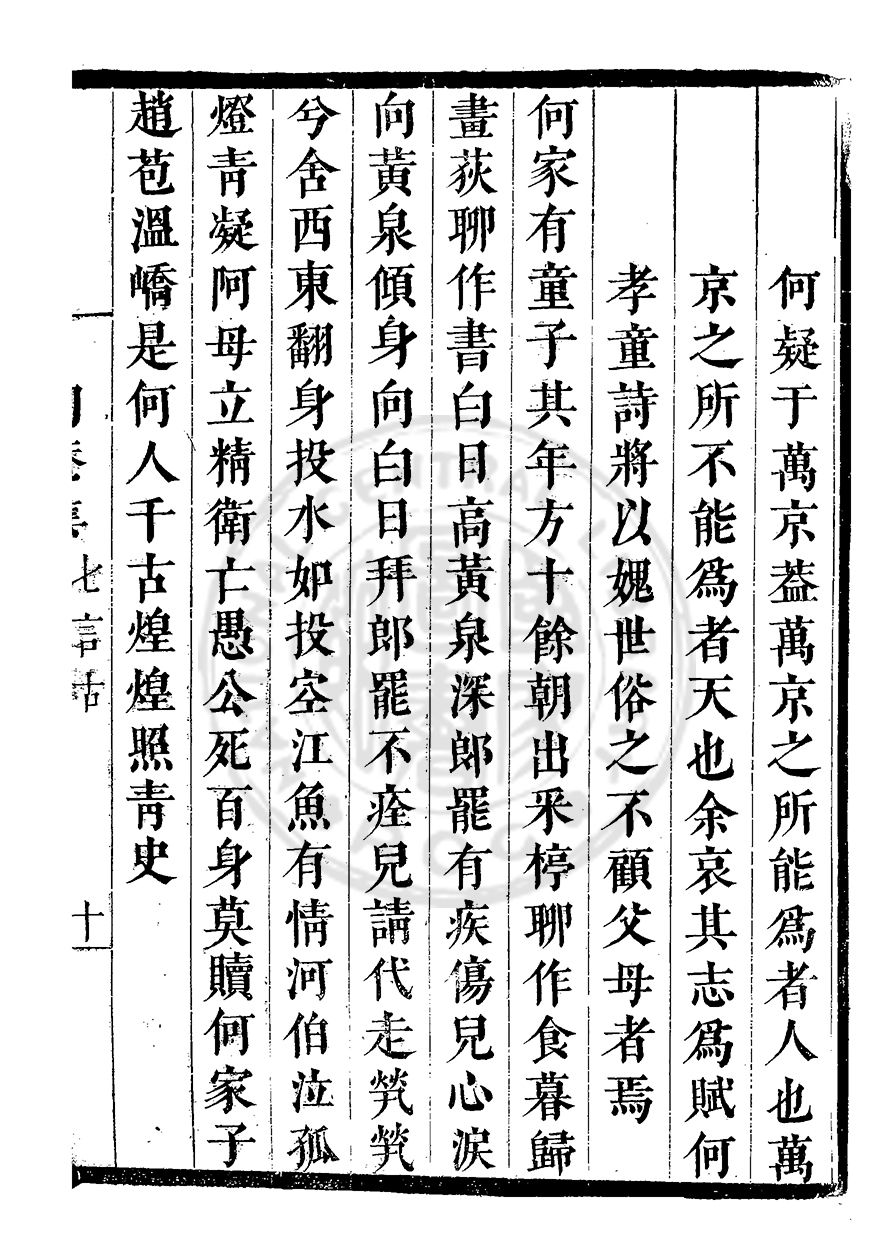 何凝于萬京葢萬京之所能爲者人也萬
京之所不能爲者天也余哀其志爲賦何
孝童詩將以媿世俗之不顧父母者焉
何家有童子其年方十餘朝出采椁聊作食暮歸
畫荻聊作書白日高黃泉深郎罷有疾傷兒心淚
向黃泉傾身向白日拜郎罷不痊兒請代走煢煢
兮舍西東翻身投水如投空江魚有情河伯泣孤
燈靑凝阿母立精衛亡愚公死百身莫贖何家子
趙苞溫嶠是何人千古煌煌照靑史
七言古
十